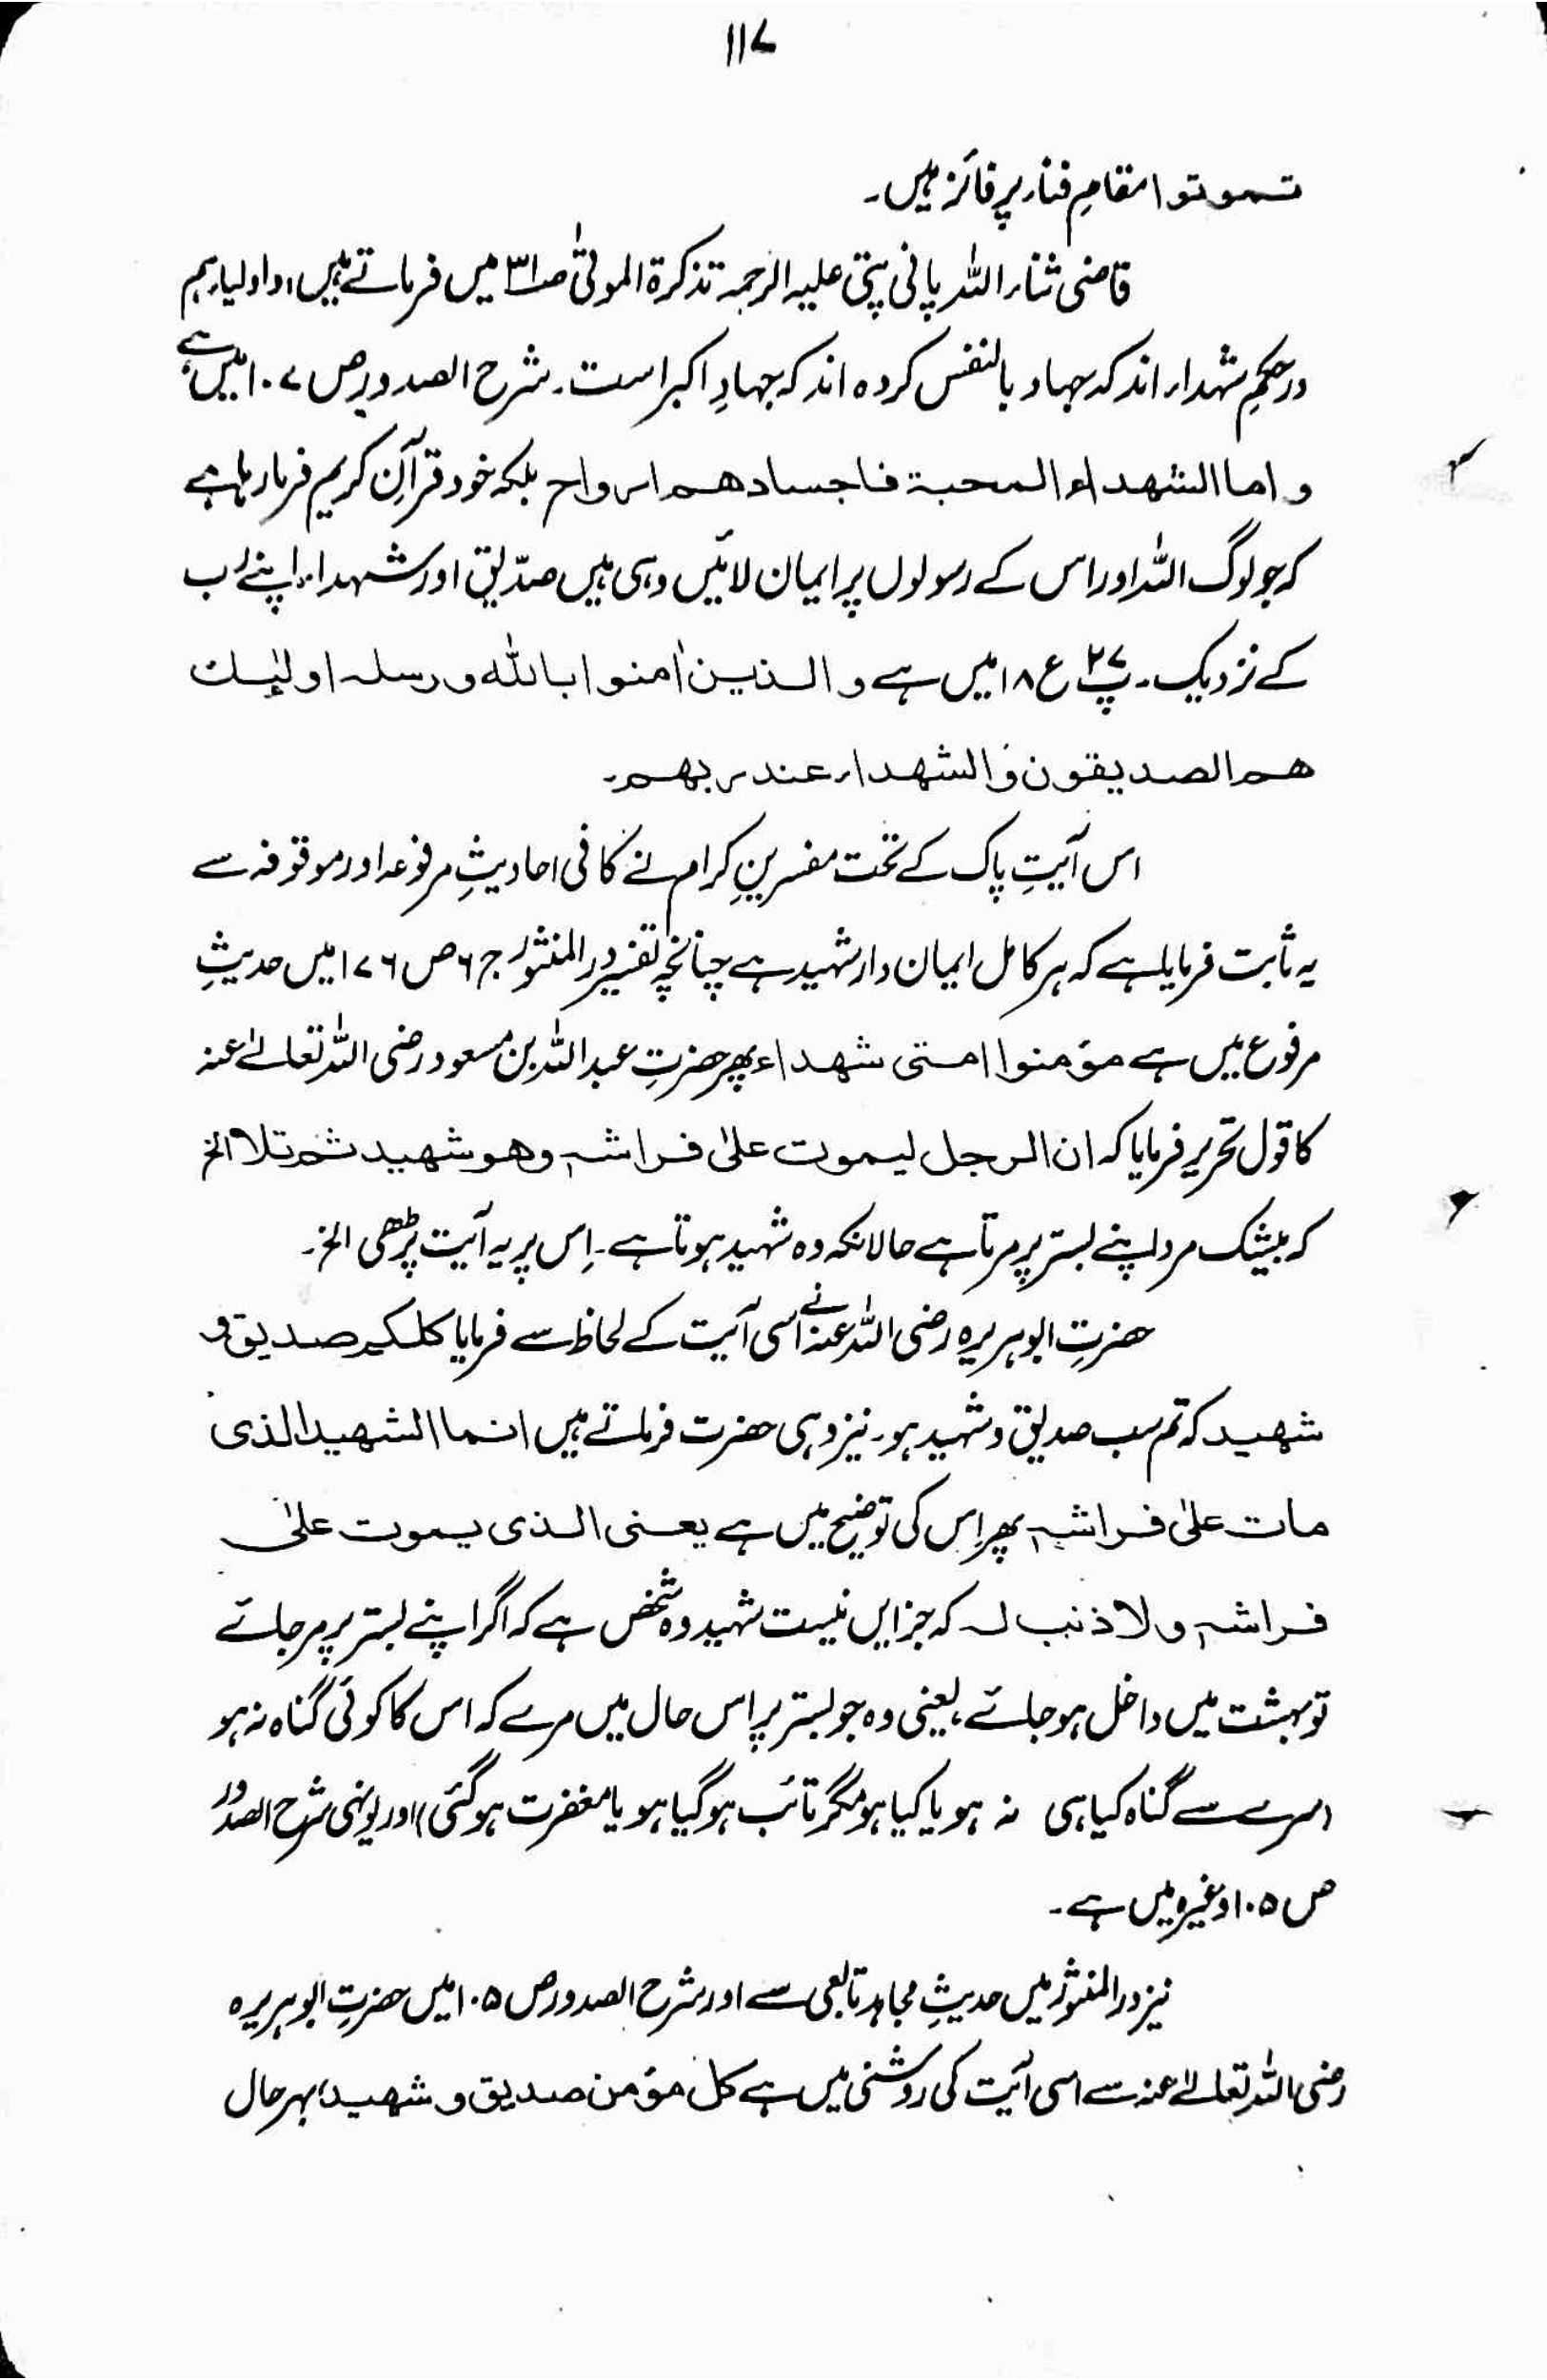 ۱۱۷
تموتوا مقامِ فناء پر فائز ہیں۔
قاضی ثناء اللہ پانی پتی علیہ الرحمہ تذکرۃ الموتیٰ صا۳ میں فرماتے ہیں، واولیاء ہم
در حکمِ شہداء اند کہ جہاد بالنفس کردہ اند کہ جہادِ اکبر است۔ شرح الصدور ص ۱۰۷ میں ہے،
و اما الشھداء المحبۃ فاجسادھم ارواح بلکہ خود قرآنِ کریم فرما رہا ہے
کہ جو لوگ اللہ اور اس کے رسولوں پر ایمان لائیں وہی ہیں صدّیق اور شہداء اپنے رب
کے نزدیک۔ پ۲۷ ع ۱۸ میں ہے و الذین اٰمنوا باللہ ورسلہ اولٰئک
ھم الصدیقون والشھداء عند ربھم۔
اس آیتِ پاک کے تحت مفسرینِ کرام نے کافی احادیثِ مرفوعہ اور موقوفہ سے
یہ ثابت فرمایا ہے کہ ہر کامل ایمان دار شہید ہے چنانچہ تفسیر در المنثور ج ۶ ص ۱۷۶ میں حدیثِ
مرفوع میں ہے مؤمنوا امتی شھداء پھر حضرتِ عبداللہ بن مسعود رضی اللہ تعالےٰ عنہ
کا قول تحریر فرمایا کہ ان الرجل لیموت علیٰ فراشہ وھو شھید ثم تلا الخ
کہ بیشک مرد اپنے بستر پر مرتا ہے حالانکہ وہ شہید ہوتا ہے۔ اِس پر یہ آیت پڑھی الخ۔
حضرتِ ابوہریرہ رضی اللہ عنہ نے اسی آیت کے لحاظ سے فرمایا کلکم صدیق و
شھید کہ تم سب صدیق و شہید ہو۔ نیز وہی حضرت فرماتے ہیں انما الشھید الذی
مات علیٰ فراشہ پھر اِس کی توضیح میں ہے یعنی الذی یموت علیٰ
فراشہ ولا ذنب لہ کہ جز ایں نیست شہید وہ شخص ہے کہ اگر اپنے بستر پر مر جائے
تو بہشت میں داخل ہو جائے، یعنی وہ جو بستر پر اس حال میں مرے کہ اس کا کوئی گناہ نہ ہو
(سرے سے گناہ کیا ہی نہ ہو یا کیا ہو مگر تائب ہو گیا ہو یا مغفرت ہو گئی) اور یونہی شرح الصدور
ص ۱۰۵ وغیرہ میں ہے۔
نیز در المنثور میں حدیثِ مجاہد تابعی سے اور شرح الصدور ص ۱۰۵ میں حضرتِ ابوہریرہ
رضی اللہ تعالےٰ عنہ سے اسی آیت کی روشنی میں ہے کل مؤمن صدیق و شھید، بہرحال